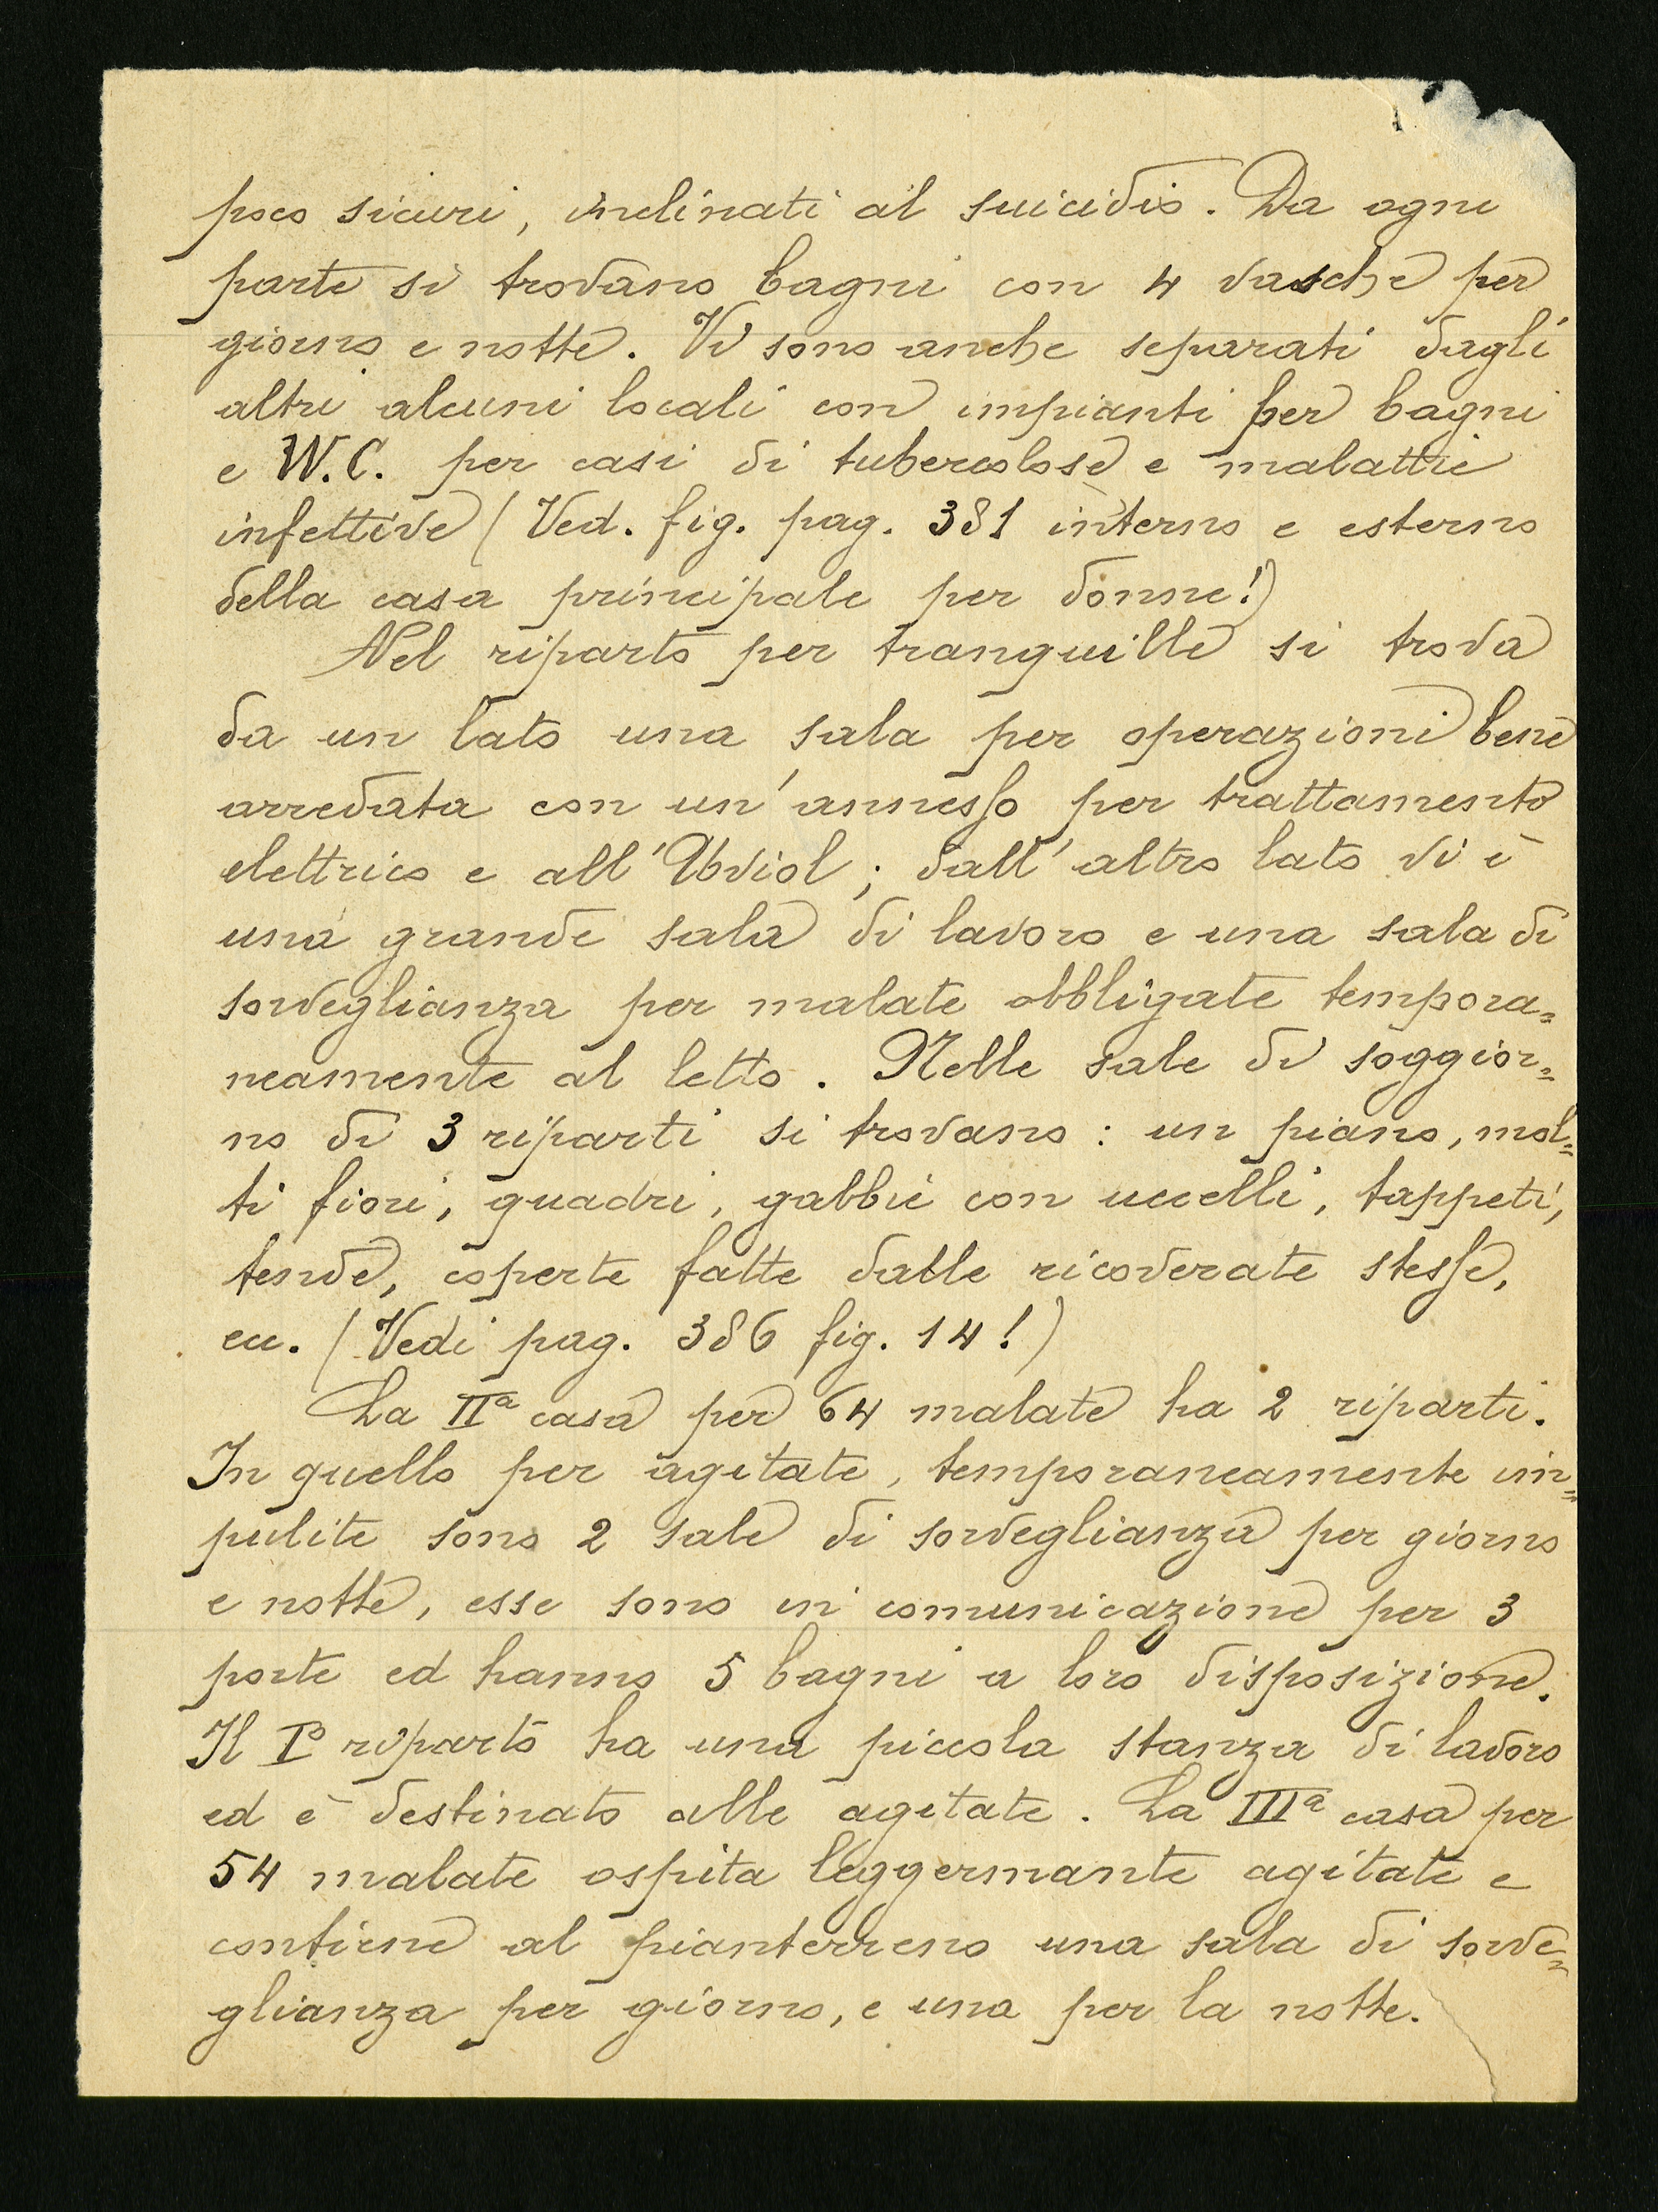 poco sicuri, inclinati al suicidio. Da ogni
parte si trovano bagni con 4 vasche per
giorno e notte. Vi sono anche separati dagli
altri alcuni locali con impianti per bagni
e W.C. per casi di tubercolose e malattie
infettive (Ved. fig. pag. 381 interno e esterno
della casa principale per donne!)
Nel riparto per tranquille si trova
da un lato una sala per operazioni bene
arredata con un'annesso per trattamento
elettrico e all'Uviol; dall'altro lato vi è
una grande sala di lavoro e una sala di
sorveglianza per malate obbligate tempora=
neamente al letto. Nelle sale di soggior=
no di 3 riparti si trovano: un piano, mol=
ti fiori, quadri, gabbie con uccelli, tappeti,
tende, coperte fatte dalle ricoverate stesse,
ecc. (Vedi pag. 386 fig. 14!)
La IIª casa per 64 malate ha 2 riparti.
In quello per agitate, temporaneamente im=
pulite sono 2 sale di sorveglianza per giorno
e notte, esse sono in comunicazione per 3
porte ed hanno 5 bagni a loro disposizione.
Il Iº riparto ha una piccola stanza di lavoro
ed è destinato alle agitate. La IIIª casa per
54 malate ospita leggermante agitate e
contiene al pianterreno una sala di sorve=
glianza per giorno, e una per la notte.